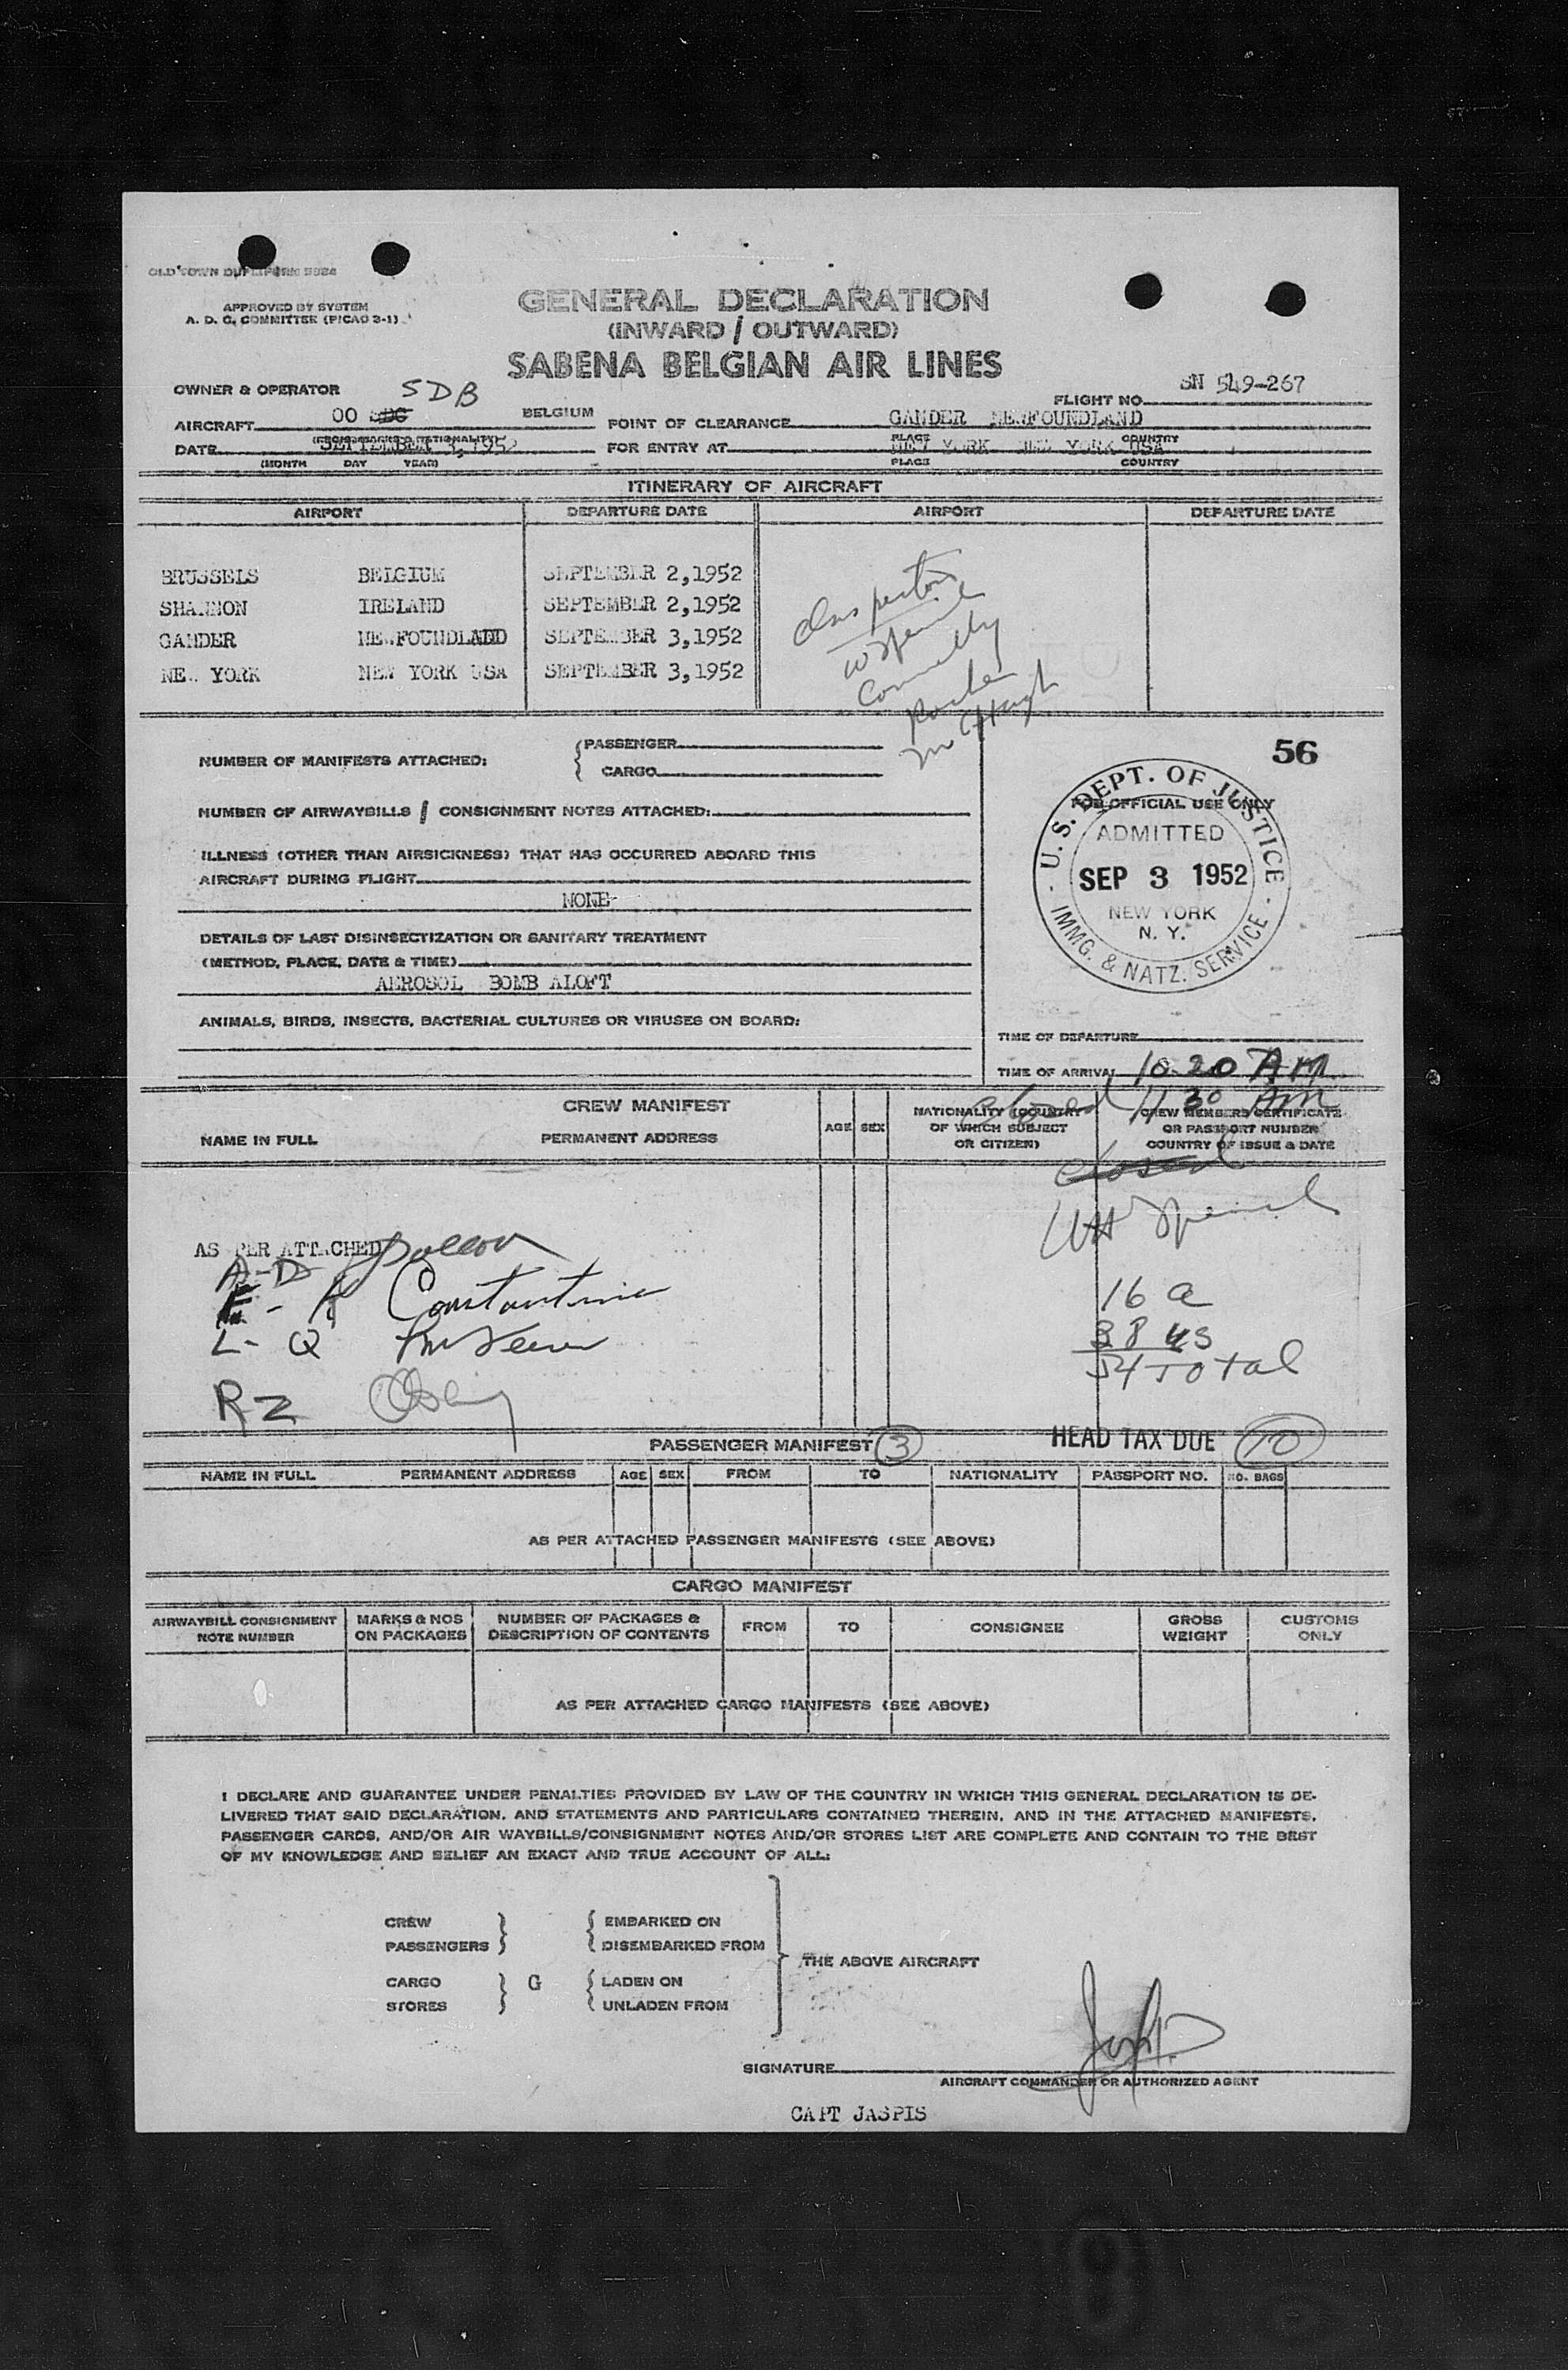 OLD TOWN DUPLIFORM
APPROVED BY SYSTEM
A. D. C. COMMITTEE (PICAO 2-1)
GENERAL DECLARATION
(INWARD / OUTWARD)
SABENA BELGIAN AIR LINES
OWNER & OPERATOR SDB
FLIGHT NO. SN 549-267
AIRCRAFT OO BELGIUM POINT OF CLEARANCE GANDER NEWFOUNDLAND
PLACE COUNTRY
DATE SEPTEMBER 3, 1952 FOR ENTRY AT NEW YORK NEW YORK USA
(MONTH DAY YEAR) PLACE COUNTRY
ITINERARY OF AIRCRAFT
AIRPORT DEPARTURE DATE AIRPORT DEPARTURE DATE
BRUSSELS BELGIUM SEPTEMBER 2,1952
SHANNON IRELAND SEPTEMBER 2,1952
GANDER NEWFOUNDLADD SEPTEMBER 3,1952
NEW YORK NEW YORK USA SEPTEMBER 3,1952
Inspectors
Connelly
McHugh
NUMBER OF MANIFESTS ATTACHED: { PASSENGER
CARGO
56
NUMBER OF AIRWAYBILLS / CONSIGNMENT NOTES ATTACHED:
FOR OFFICIAL USE ONLY
U.S. DEPT. OF JUSTICE
ADMITTED
SEP 3 1952
NEW YORK
N. Y.
IMMG. & NATZ. SERVICE
ILLNESS (OTHER THAN AIRSICKNESS) THAT HAS OCCURRED ABOARD THIS
AIRCRAFT DURING FLIGHT
NONE
DETAILS OF LAST DISINSECTIZATION OR SANITARY TREATMENT
(METHOD, PLACE, DATE & TIME)
AEROSOL BOMB ALOFT
ANIMALS, BIRDS, INSECTS, BACTERIAL CULTURES OR VIRUSES ON BOARD:
TIME OF DEPARTURE
TIME OF ARRIVAL 10 20 AM
closed 11 30 AM
CREW MANIFEST
NAME IN FULL PERMANENT ADDRESS AGE SEX NATIONALITY (COUNTRY OF WHICH SUBJECT OR CITIZEN) CREW MEMBERS CERTIFICATE OR PASSPORT NUMBER COUNTRY OF ISSUE & DATE
closed
AS PER ATTACHED
A-D
E - K Constantine
L - Q
R Z
16 a
38 us
54 Total
PASSENGER MANIFEST 3
HEAD TAX DUE 10
NAME IN FULL PERMANENT ADDRESS AGE SEX FROM TO NATIONALITY PASSPORT NO. NO. BAGS
AS PER ATTACHED PASSENGER MANIFESTS (SEE ABOVE)
CARGO MANIFEST
AIRWAYBILL CONSIGNMENT NOTE NUMBER MARKS & NOS ON PACKAGES NUMBER OF PACKAGES & DESCRIPTION OF CONTENTS FROM TO CONSIGNEE GROSS WEIGHT CUSTOMS ONLY
AS PER ATTACHED CARGO MANIFESTS (SEE ABOVE)
I DECLARE AND GUARANTEE UNDER PENALTIES PROVIDED BY LAW OF THE COUNTRY IN WHICH THIS GENERAL DECLARATION IS DE-
LIVERED THAT SAID DECLARATION, AND STATEMENTS AND PARTICULARS CONTAINED THEREIN, AND IN THE ATTACHED MANIFESTS,
PASSENGER CARDS, AND/OR AIR WAYBILLS/CONSIGNMENT NOTES AND/OR STORES LIST ARE COMPLETE AND CONTAIN TO THE BEST
OF MY KNOWLEDGE AND BELIEF AN EXACT AND TRUE ACCOUNT OF ALL:
CREW } { EMBARKED ON
PASSENGERS } { DISEMBARKED FROM
THE ABOVE AIRCRAFT
CARGO } G { LADEN ON
STORES } { UNLADEN FROM
SIGNATURE
AIRCRAFT COMMANDER OR AUTHORIZED AGENT
CAPT JASPIS